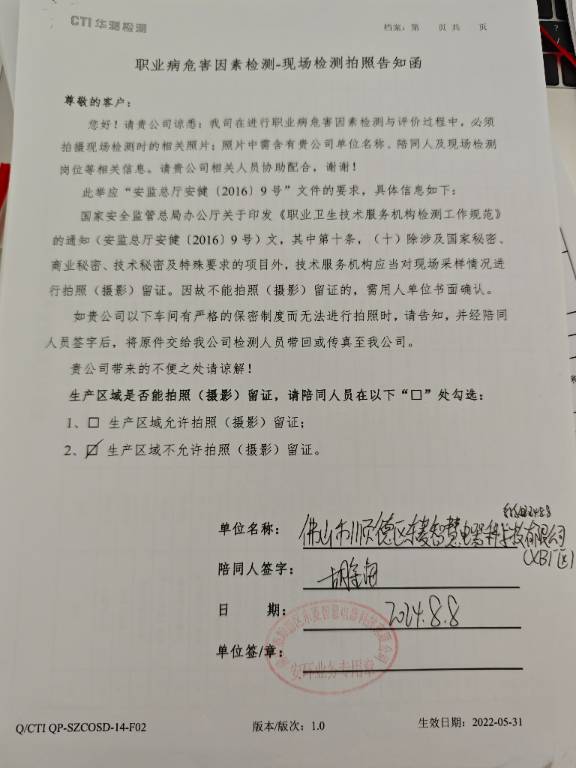 CTI 华测检测
档案：第 页 共 页
职业病危害因素检测-现场检测拍照告知函
尊敬的客户：
您好！请贵公司谅悉：我司在进行职业病危害因素检测与评价过程中，必须
拍摄现场检测时的相关照片；照片中需含有贵公司单位名称、陪同人及现场检测
岗位等相关信息。请贵公司相关人员协助配合，谢谢！
此举应“安监总厅安健〔2016〕9 号”文件的要求，具体信息如下：
国家安全监管总局办公厅关于印发《职业卫生技术服务机构检测工作规范》
的通知（安监总厅安健〔2016〕9 号）文，其中第十条，（十）除涉及国家秘密、
商业秘密、技术秘密及特殊要求的项目外，技术服务机构应当对现场采样情况进
行拍照（摄影）留证。因故不能拍照（摄影）留证的，需用人单位书面确认。
如贵公司以下车间有严格的保密制度而无法进行拍照时，请告知，并经陪同
人员签字后，将原件交给我公司检测人员带回或传真至我公司。
贵公司带来的不便之处请谅解！
生产区域是否能拍照（摄影）留证，请陪同人员在以下“□”处勾选：
1、□ 生产区域允许拍照（摄影）留证；
2、☑ 生产区域不允许拍照（摄影）留证。
单位名称： 佛山市顺德区东菱智慧电器科技有限公司
(XB厂区)
陪同人签字：
日 期： 2024.8.8
单位签/章：
安环业务专用章
Q/CTI QP-SZCOSD-14-F02 版本/版次：1.0 生效日期：2022-05-31